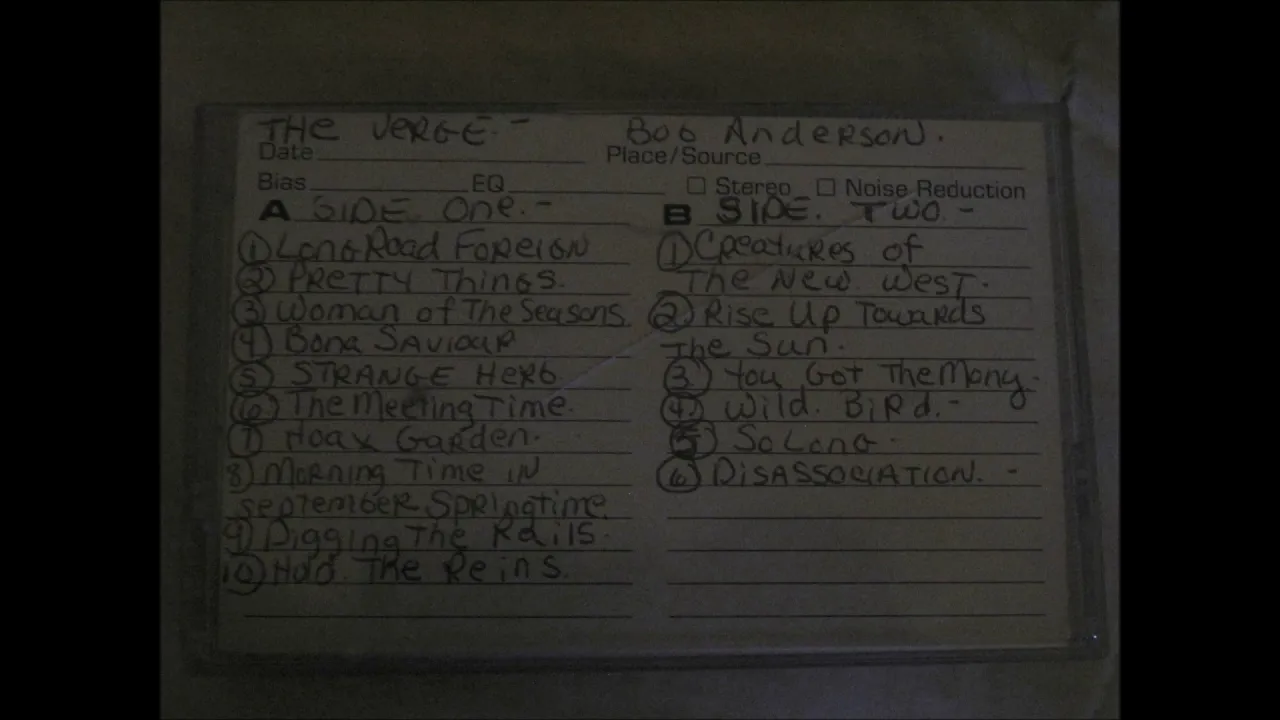 THE VERGE.- Bob Anderson.
Date Place/Source
Bias EQ Stereo Noise Reduction
A SIDE One.-
① Long Road Foreign
② PRETTY Things.
③ Woman of The Seasons.
④ Bona SAVIOUR
⑤ STRANGE Herb
⑥ The Meeting Time.
⑦ Hoax Garden.
8) Morning Time IN
September Springtime.
9) Digging The Rails.
⑩ The Reins.
B SIDE. TWO.-
① Creatures of
The New West.
② Rise Up Towards
The Sun.
③ You Got The Mony.
④ Wild. Bird.-
⑤ So Long -
⑥ DISASSOCIATION.-